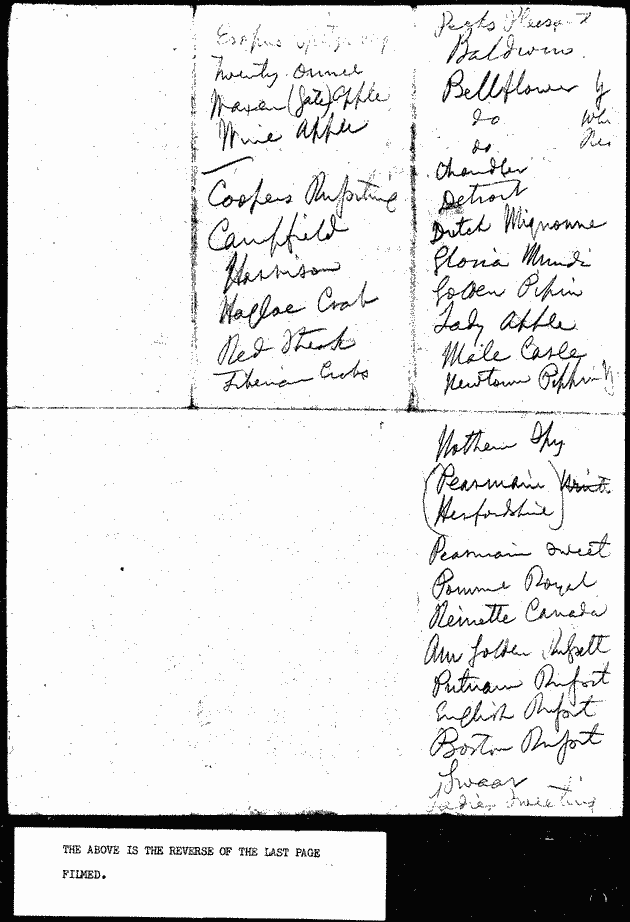 Esopus Spitzenberg
Twenty Ounce
Waxen (Gate) Apple
Wine Apple
Coopers Russeting
Campfield
Harrison
Hagloe Crab
Red Streak
Siberian Crabs
Pecks Pleasant
Baldwins
Bellflower Y
do Whi
do
Chandler
Detroit
Dutch Mignonne
Gloria Mundi
Golden Pipin
Lady Apple
Male Carle
Newtown Pippin Y
Nothern Spy
(Pearmain
Herfordshire)
Pearmain Sweet
Pomme Royal
Reinette Canada
Am Golden Russett
Putnam Russet
English Russet
Boston Russet
Swaar
Ladies Sweeting
THE ABOVE IS THE REVERSE OF THE LAST PAGE
FILMED.